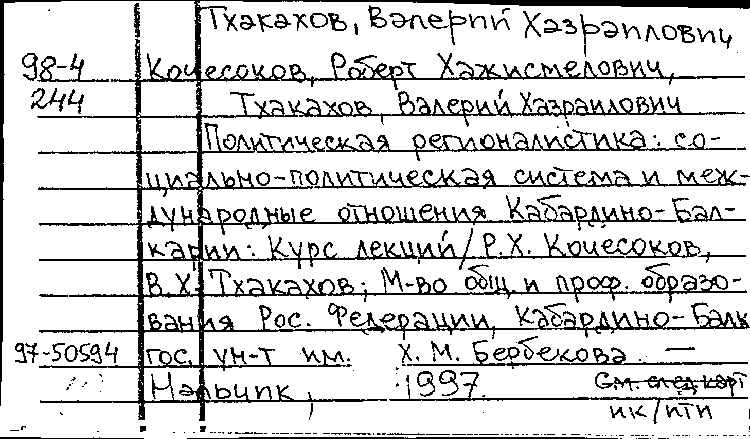 Тхакахов, Валерий Хазраилович
98-4 Кочесоков, Роберт Хажисмелович,
244 Тхакахов, Валерий Хазраилович
Политическая регионалистика: со-
циально-политическая система и меж-
дународные отношения Кабардино-Бал-
карии: Курс лекций / Р.Х. Кочесоков,
В.Х. Тхакахов; М-во общ. и проф. образо-
вания Рос. Федерации, Кабардино-Балк
97-50594 гос. ун-т им. Х. М. Бербекова. —
Нальчик, 1997.
См. след карт
ик/пти